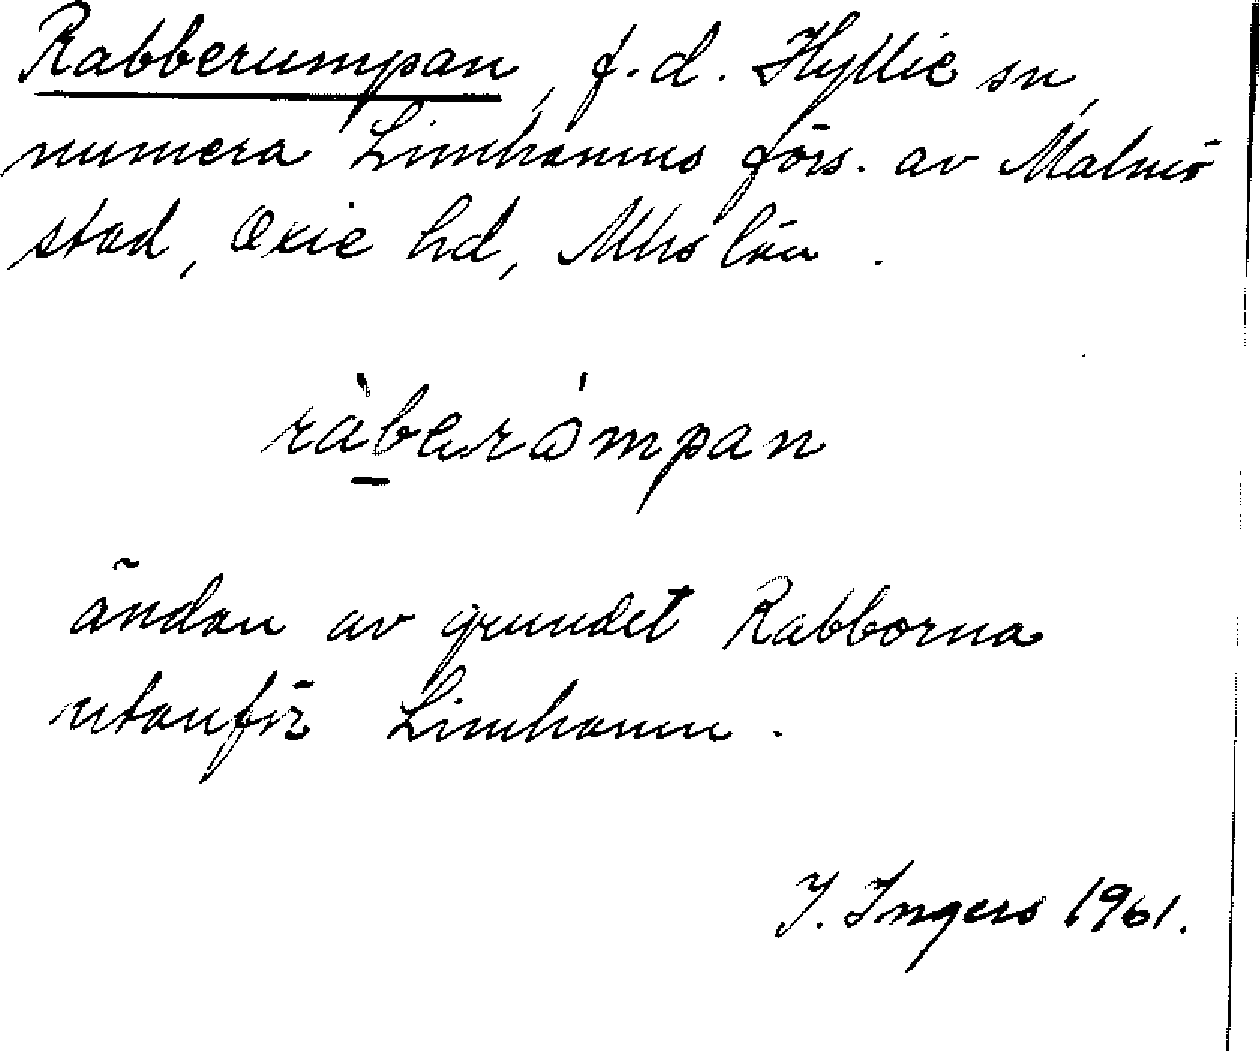 Rabberumpan, f.d. Hyllie sn,
numera Limhamns förs. av Malmö
stad, Oxie hd, Mhs län.
ràberómpan
ändan av grundet Rabborna
utanför Limhamn.
I. Ingers 1961.